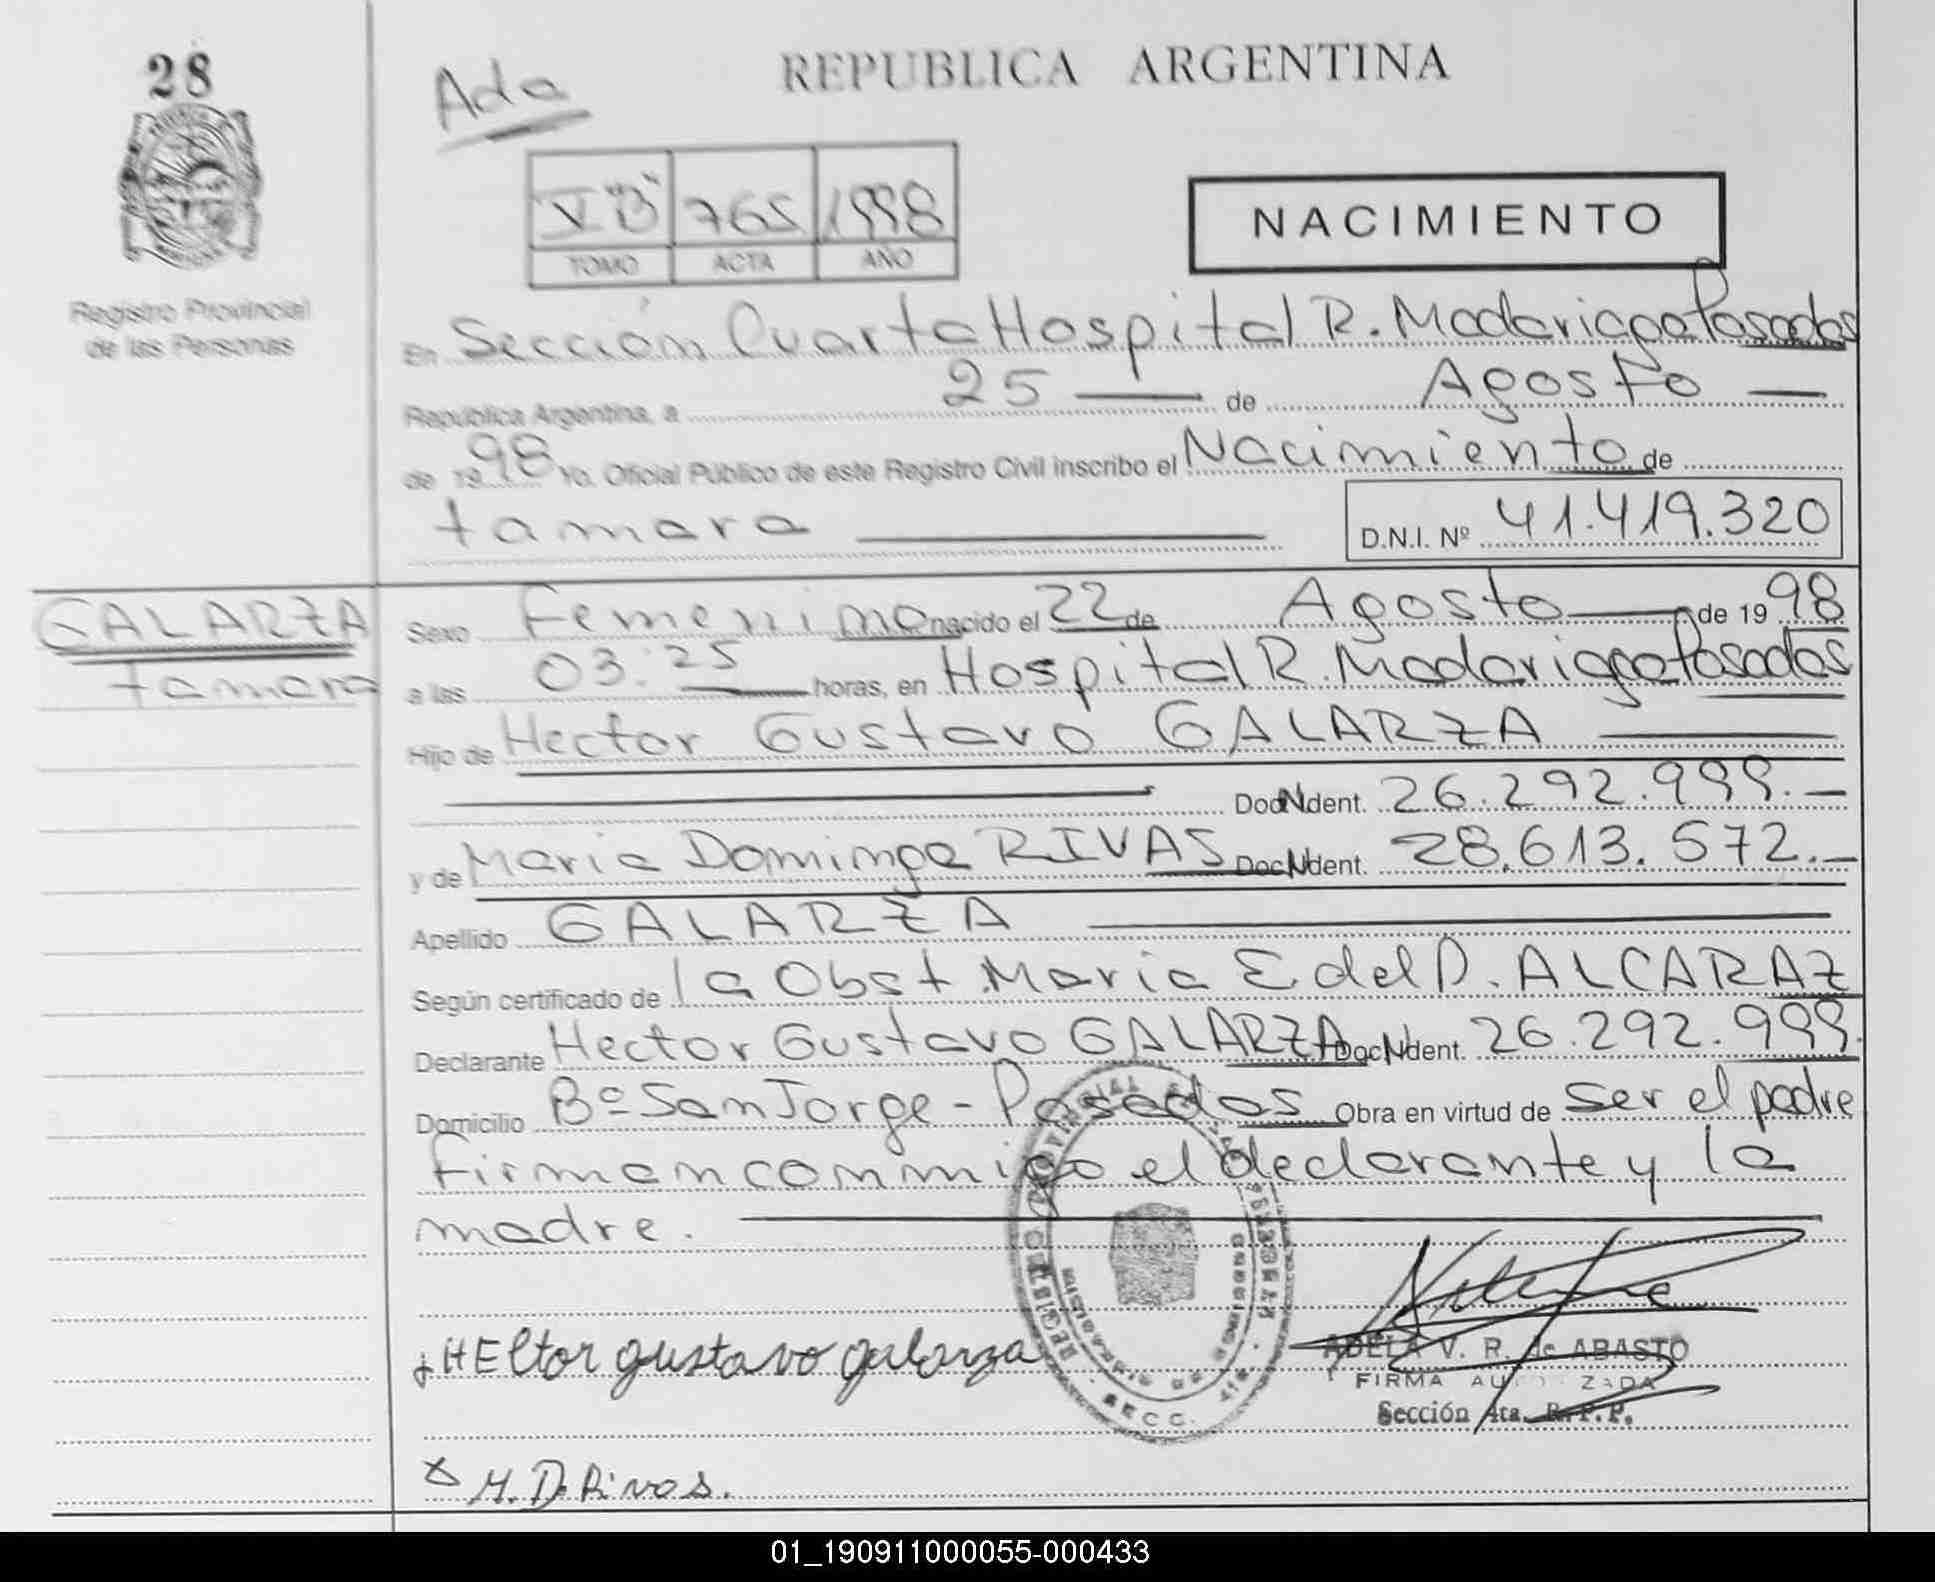 28
Ada
REPUBLICA ARGENTINA
V "B" 765 1998
TOMO ACTA AÑO
NACIMIENTO
Registro Provincial
de las Personas
En Sección Cuarta Hospital R. Madariaga Posadas
República Argentina, a 25 de Agosto
de 1998 Yo, Oficial Público de este Registro Civil inscribo el Nacimiento de
tamara
D.N.I. Nº 41.419.320
GALARZA
tamara
Sexo Femenino nacido el 22 de Agosto de 1998
a las 03:25 horas, en Hospital R. Madariaga Posadas
Hijo de Hector Gustavo GALARZA
Doc N Ident. 26.292.999.
y de Maria Dominga RIVAS Doc N Ident. 28.613.572.
Apellido GALARZA
Según certificado de la Obst. Maria E del D. ALCARAZ
Declarante Hector Gustavo GALARZA Doc N Ident. 26.292.999.
Domicilio Bº San Jorge - Posadas Obra en virtud de ser el padre
firman conmigo el declarante y la
madre.
HEctor gustavo galarza
ADELA V. R. de ABASTO
FIRMA AUTORIZADA
Sección 4ta. R.P.P.
SECC.
x M. D. Rivas.
01_190911000055-000433